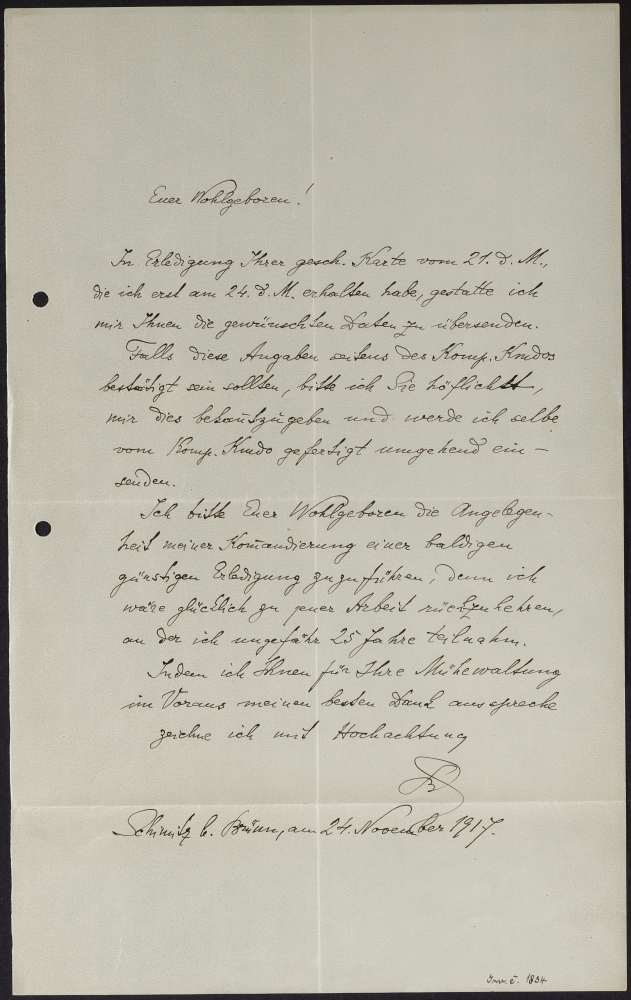 Euer Wohlgeboren!
In Erledigung Ihrer gesch. Karte vom 21. d. M.,
die ich erst am 24. d. M. erhalten habe, gestatte ich
mir Ihnen die gewünschten Daten zu übersenden.
Falls diese Angaben seitens des Komp. Kmdos
bestätigt sein sollten, bitte ich Sie höflichst,
mir dies bekanntzugeben und werde ich selbe
vom Komp. Kmdo gefertigt umgehend ein-
senden.
Ich bitte Euer Wohlgeboren die Angelegen-
heit meiner Kom̄andierung einer baldigen
günstigen Erledigung zuzuführen, denn ich
wäre glücklich zu jener Arbeit rückzukehren,
an der ich ungefähr 25 Jahre teilnahm.
Indem ich Ihnen für Ihre Mühewaltung
im Voraus meinen besten Dank ausspreche
zeichne ich mit Hochachtung
Schimitz b. Brünn, am 24. November 1917.
Inv. č. 1834